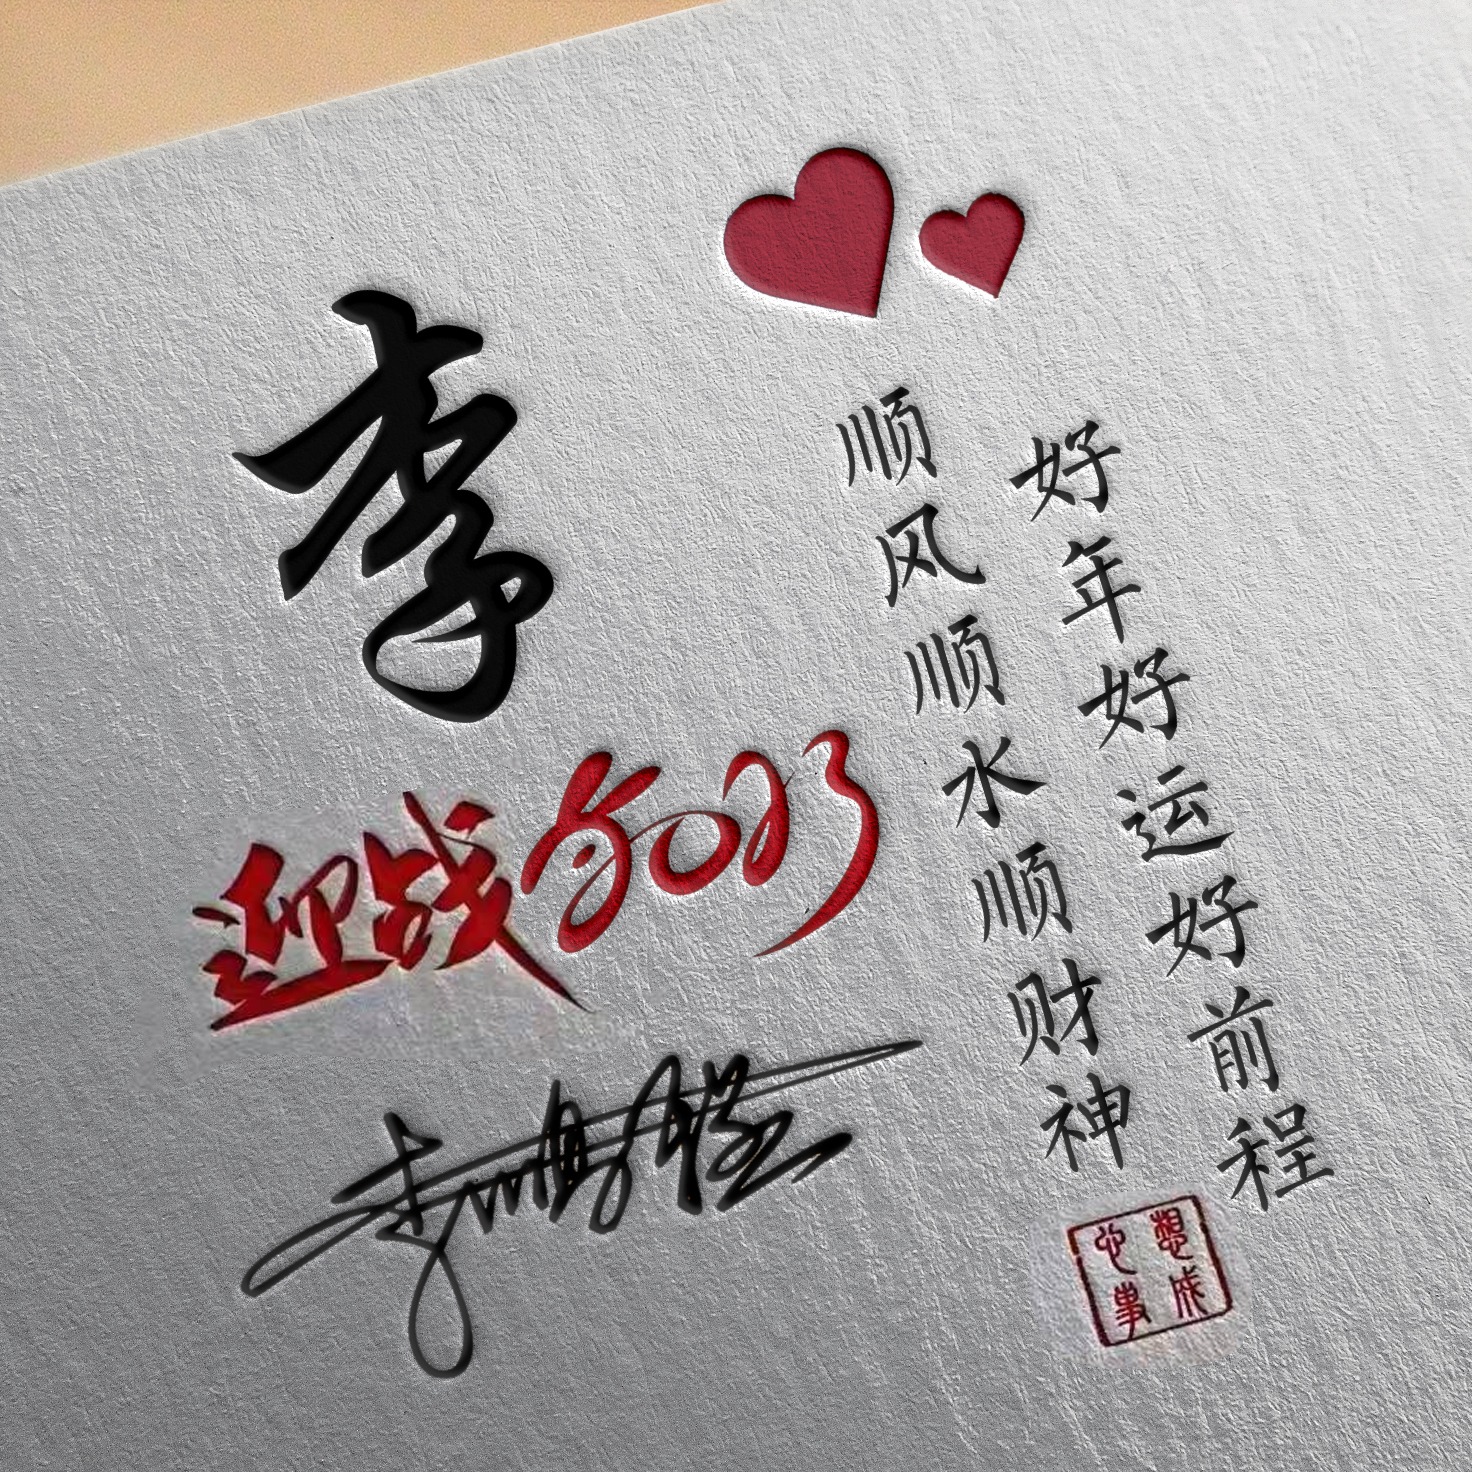 李
迎战2023
好年好运好前程
顺风顺水顺财神
想成
心事